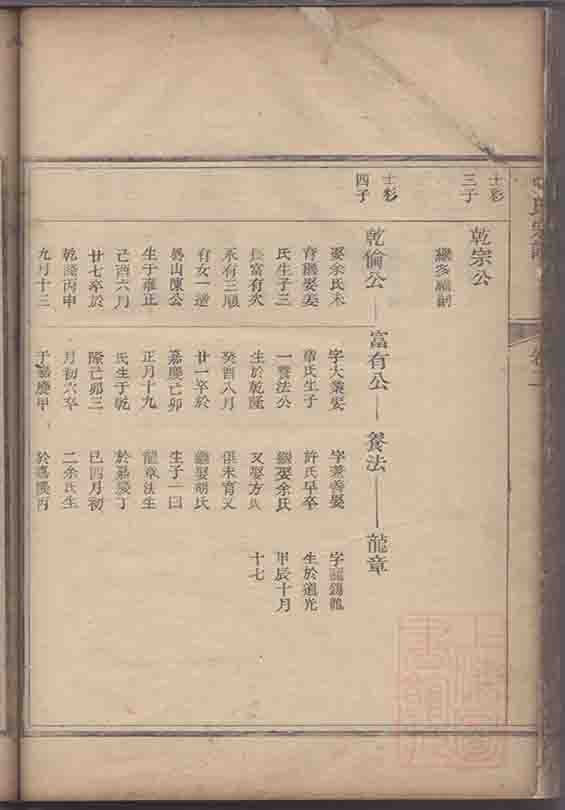 氏宗
士彩
三子
乾宗公
士彩
四子
乾倫公—富有公—養法——龍章
娶余氏未
育繼娶姜
氏生子三
長富有次
永有三順
有女一適
山陳公
生于雍正
己酉六月
廿七卒於
乾隆丙申
九月十三
字大業娶
章氏生子
一養法公
生於乾隆
癸酉八月
廿一卒於
嘉慶己卯
正月十九
氏生于乾
隆己卯三
月初六卒
于嘉慶甲
字養善娶
許氏早卒
繼娶余氏
又娶方氏
俱未育又
繼娶胡氏
生子一曰
龍章法生
於嘉慶丁
巳四月初
二余氏生
於嘉慶丙
字龍錫
生於道光
甲辰十月
十七